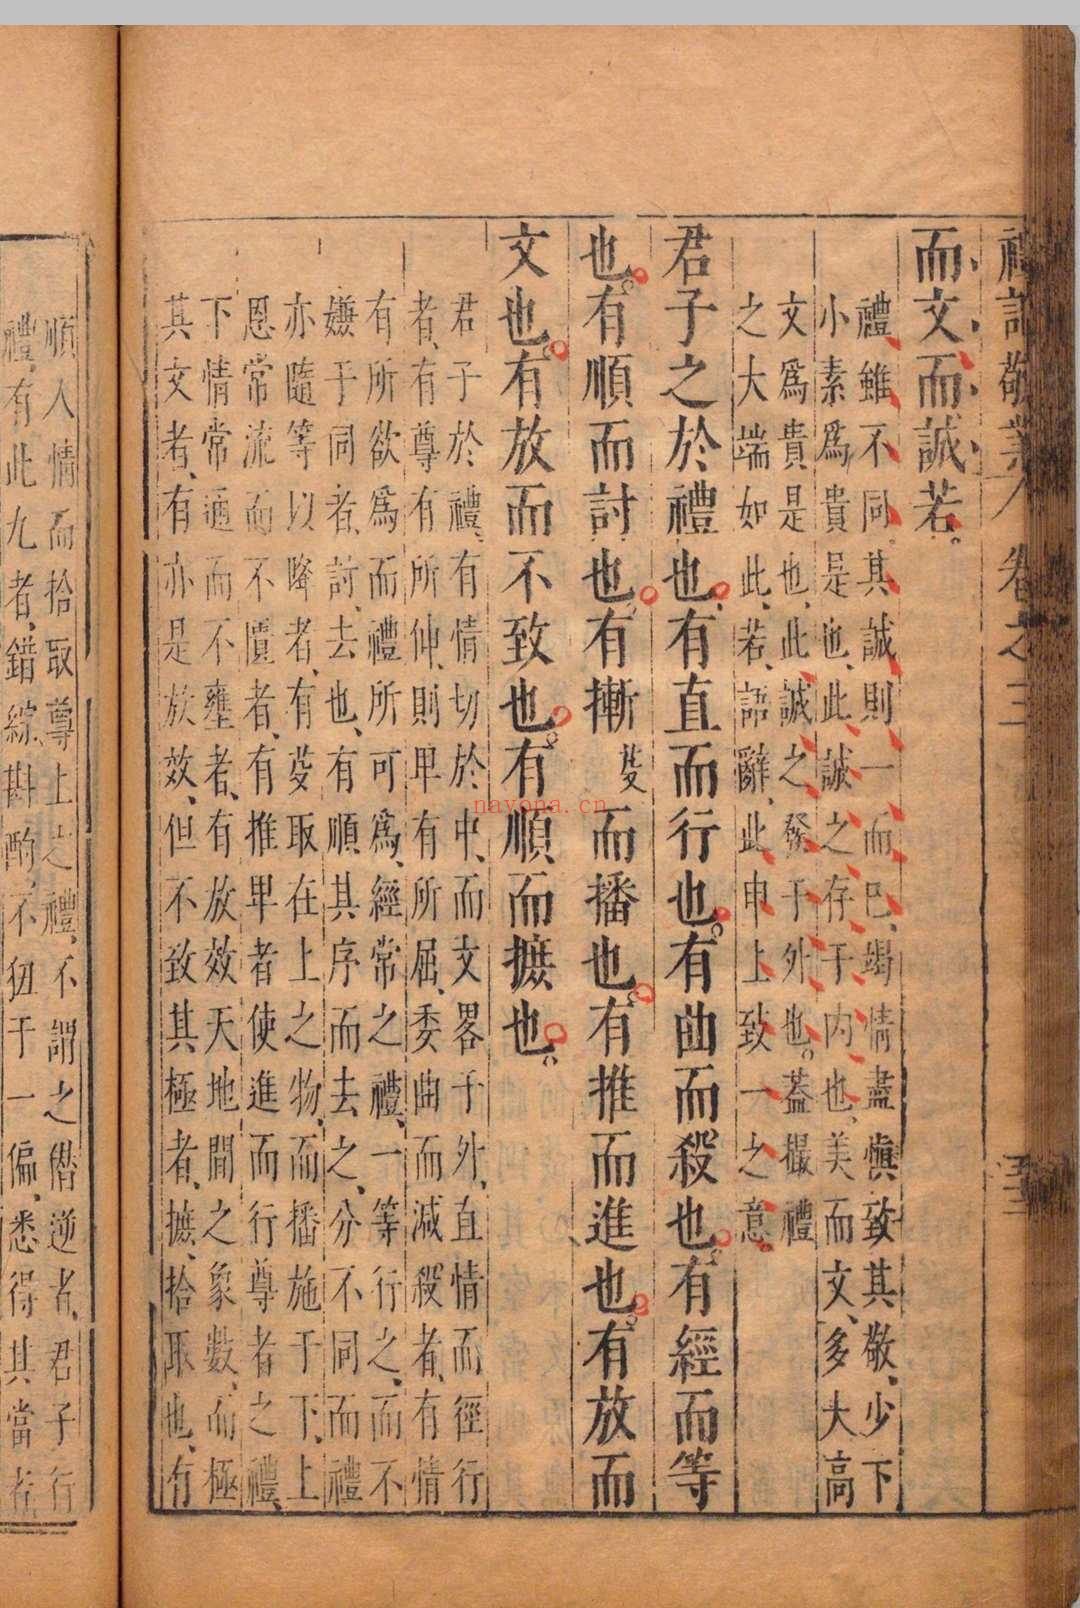 禮記敬業 卷之三
而文而誠若
禮雖不同其誠則一而已竭情盡愼致其敬少下
小素爲貴是也此誠之存于内也美而文多大高
文爲貴是也此誠之發于外也葢撮禮
之大端如此若語辭此申上致一之意
君子之於禮也有直而行也有曲而殺也有經而等
也有順而討也有摲芟而播也有推而進也有放而
文也有放而不致也有順而摭也
君子於禮有情切於中而文畧于外直情而徑行
者有尊有所伸則卑有所屈委曲而減殺者有情
有所欲爲而禮所可爲經常之禮一等行之而不
嫌于同者討去也有順其序而去之分不同而禮
亦隨等以降者有芟取在上之物而播施于下上
恩常流而不匱者有推卑者使進而行尊者之禮
下情常通而不壅者有放效天地間之象數而極
其文者有亦是放效但不致其極者摭拾取也有
順人情而拾取尊上之禮不謂之僭逆者君子行
禮有此九者錯綜斟酌不狃于一偏悉得其當者
nayona.cn